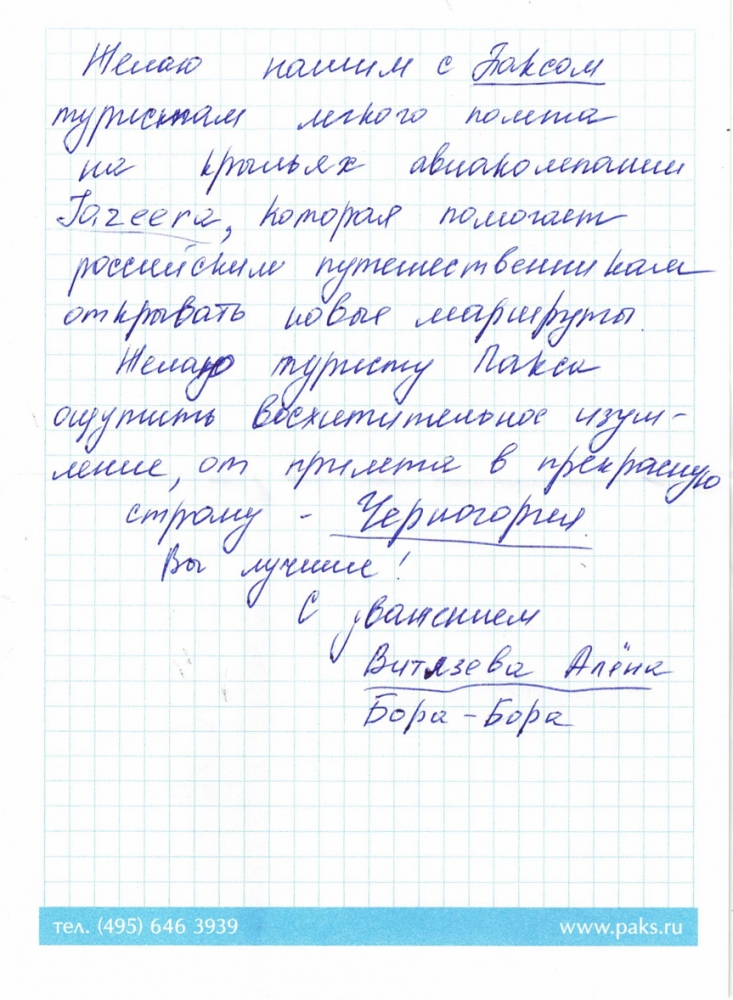 Желаю нашим с Паксом
туристам легкого полета
на крыльях авиакомпании
Jazeera, которая помогает
российским путешественникам
открывать новые маршруты.
Желаю туристу Пакса
ощутить восхитительное изум-
ление, от прилета в прекрасную
страну - Черногория.
Вы лучшие!
С уважением
Витязева Алёна
Бора-Бора
тел. (495) 646 3939
www.paks.ru